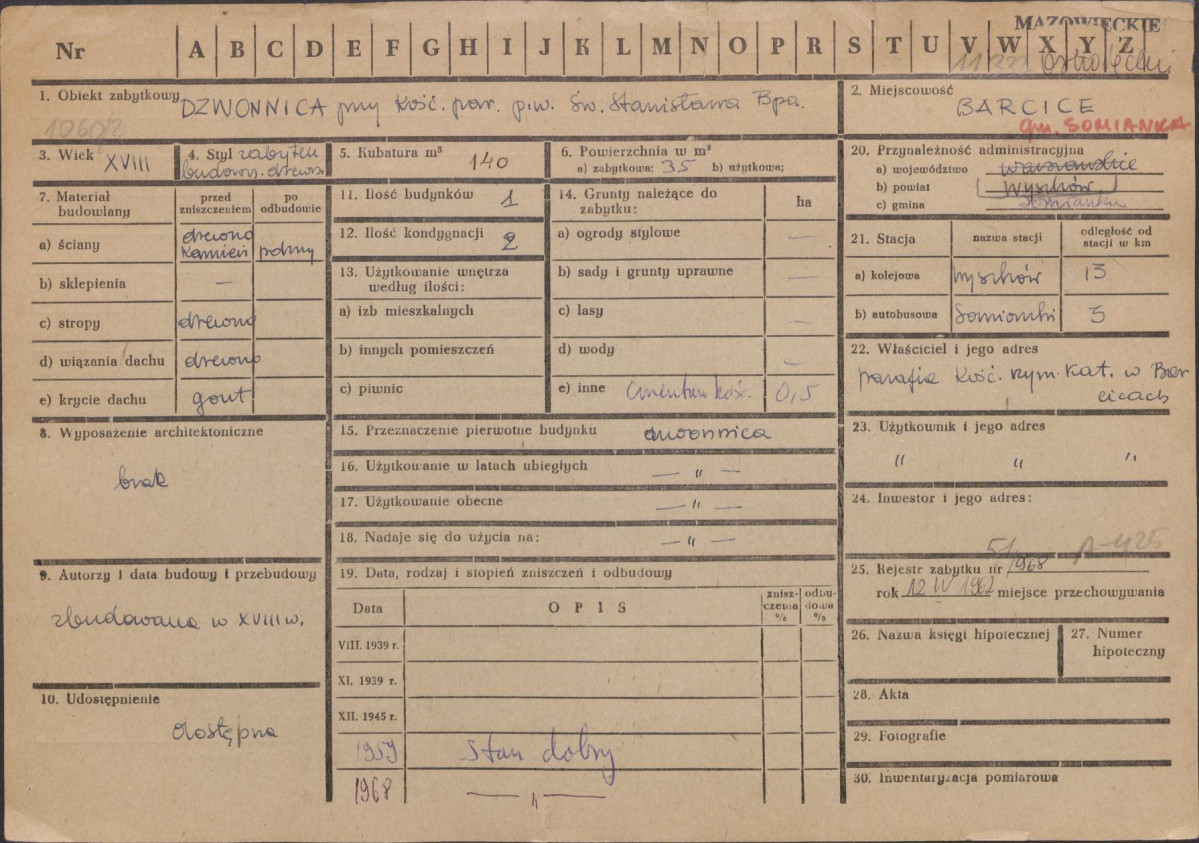 MAZOWIECKIE
Nr A B C D E F G H I J K L M N O P R S T U V W X Y Z
1. Obiekt zabytkowy DZWONNICA przy kość. par. p.w. Św. Stanisława Bpa.
2. Miejscowość
BARCICE
gm. SOMIANKA
3. Wiek XVIII
4. Styl zabytek
budown. drewn.
5. Kubatura m³ 140
6. Powierzchnia w m²
a) zabytkowa: 35 b) użytkowa;
7. Materiał budowlany
przed zniszczeniem
po odbudowie
a) ściany drewno kamień polny
b) sklepienia —
c) stropy drewno
d) wiązania dachu drewno
e) krycie dachu gont
8. Wyposażenie architektoniczne
brak
9. Autorzy i data budowy i przebudowy
zbudowana w XVIII w.
10. Udostępnienie
dostępna
11. Ilość budynków 1
12. Ilość kondygnacji 2
13. Użytkowanie wnętrza
według ilości:
a) izb mieszkalnych
b) innych pomieszczeń
c) piwnic
14. Grunty należące do
zabytku: ha
a) ogrody stylowe —
b) sady i grunty uprawne —
c) lasy —
d) wody —
e) inne cmentarz kość. 0,5
15. Przeznaczenie pierwotne budynku dzwonnica
16. Użytkowanie w latach ubiegłych — " —
17. Użytkowanie obecne — " —
18. Nadaje się do użycia na: — " —
19. Data, rodzaj i stopień zniszczeń i odbudowy
Data OPIS znisz-czenia % odbu-dowa %
VIII. 1939 r.
XI. 1939 r.
XII. 1945 r.
1959 stan dobry
1968 — " —
20. Przynależność administracyjna
a) województwo warszawskie
b) powiat Wyszków
c) gmina Somianka
21. Stacja nazwa stacji odległość od stacji w km
a) kolejowa Wyszków 13
b) autobusowa Somianka 3
22. Właściciel i jego adres
parafia kość. rzym. kat. w Bar
cicach
23. Użytkownik i jego adres
" " "
24. Inwestor i jego adres:
25. Rejestr zabytku nr 51/1968
rok 12 IV 1962 miejsce przechowywania
26. Nazwa księgi hipotecznej
27. Numer
hipoteczny
28. Akta
29. Fotografie
30. Inwentaryzacja pomiarowa